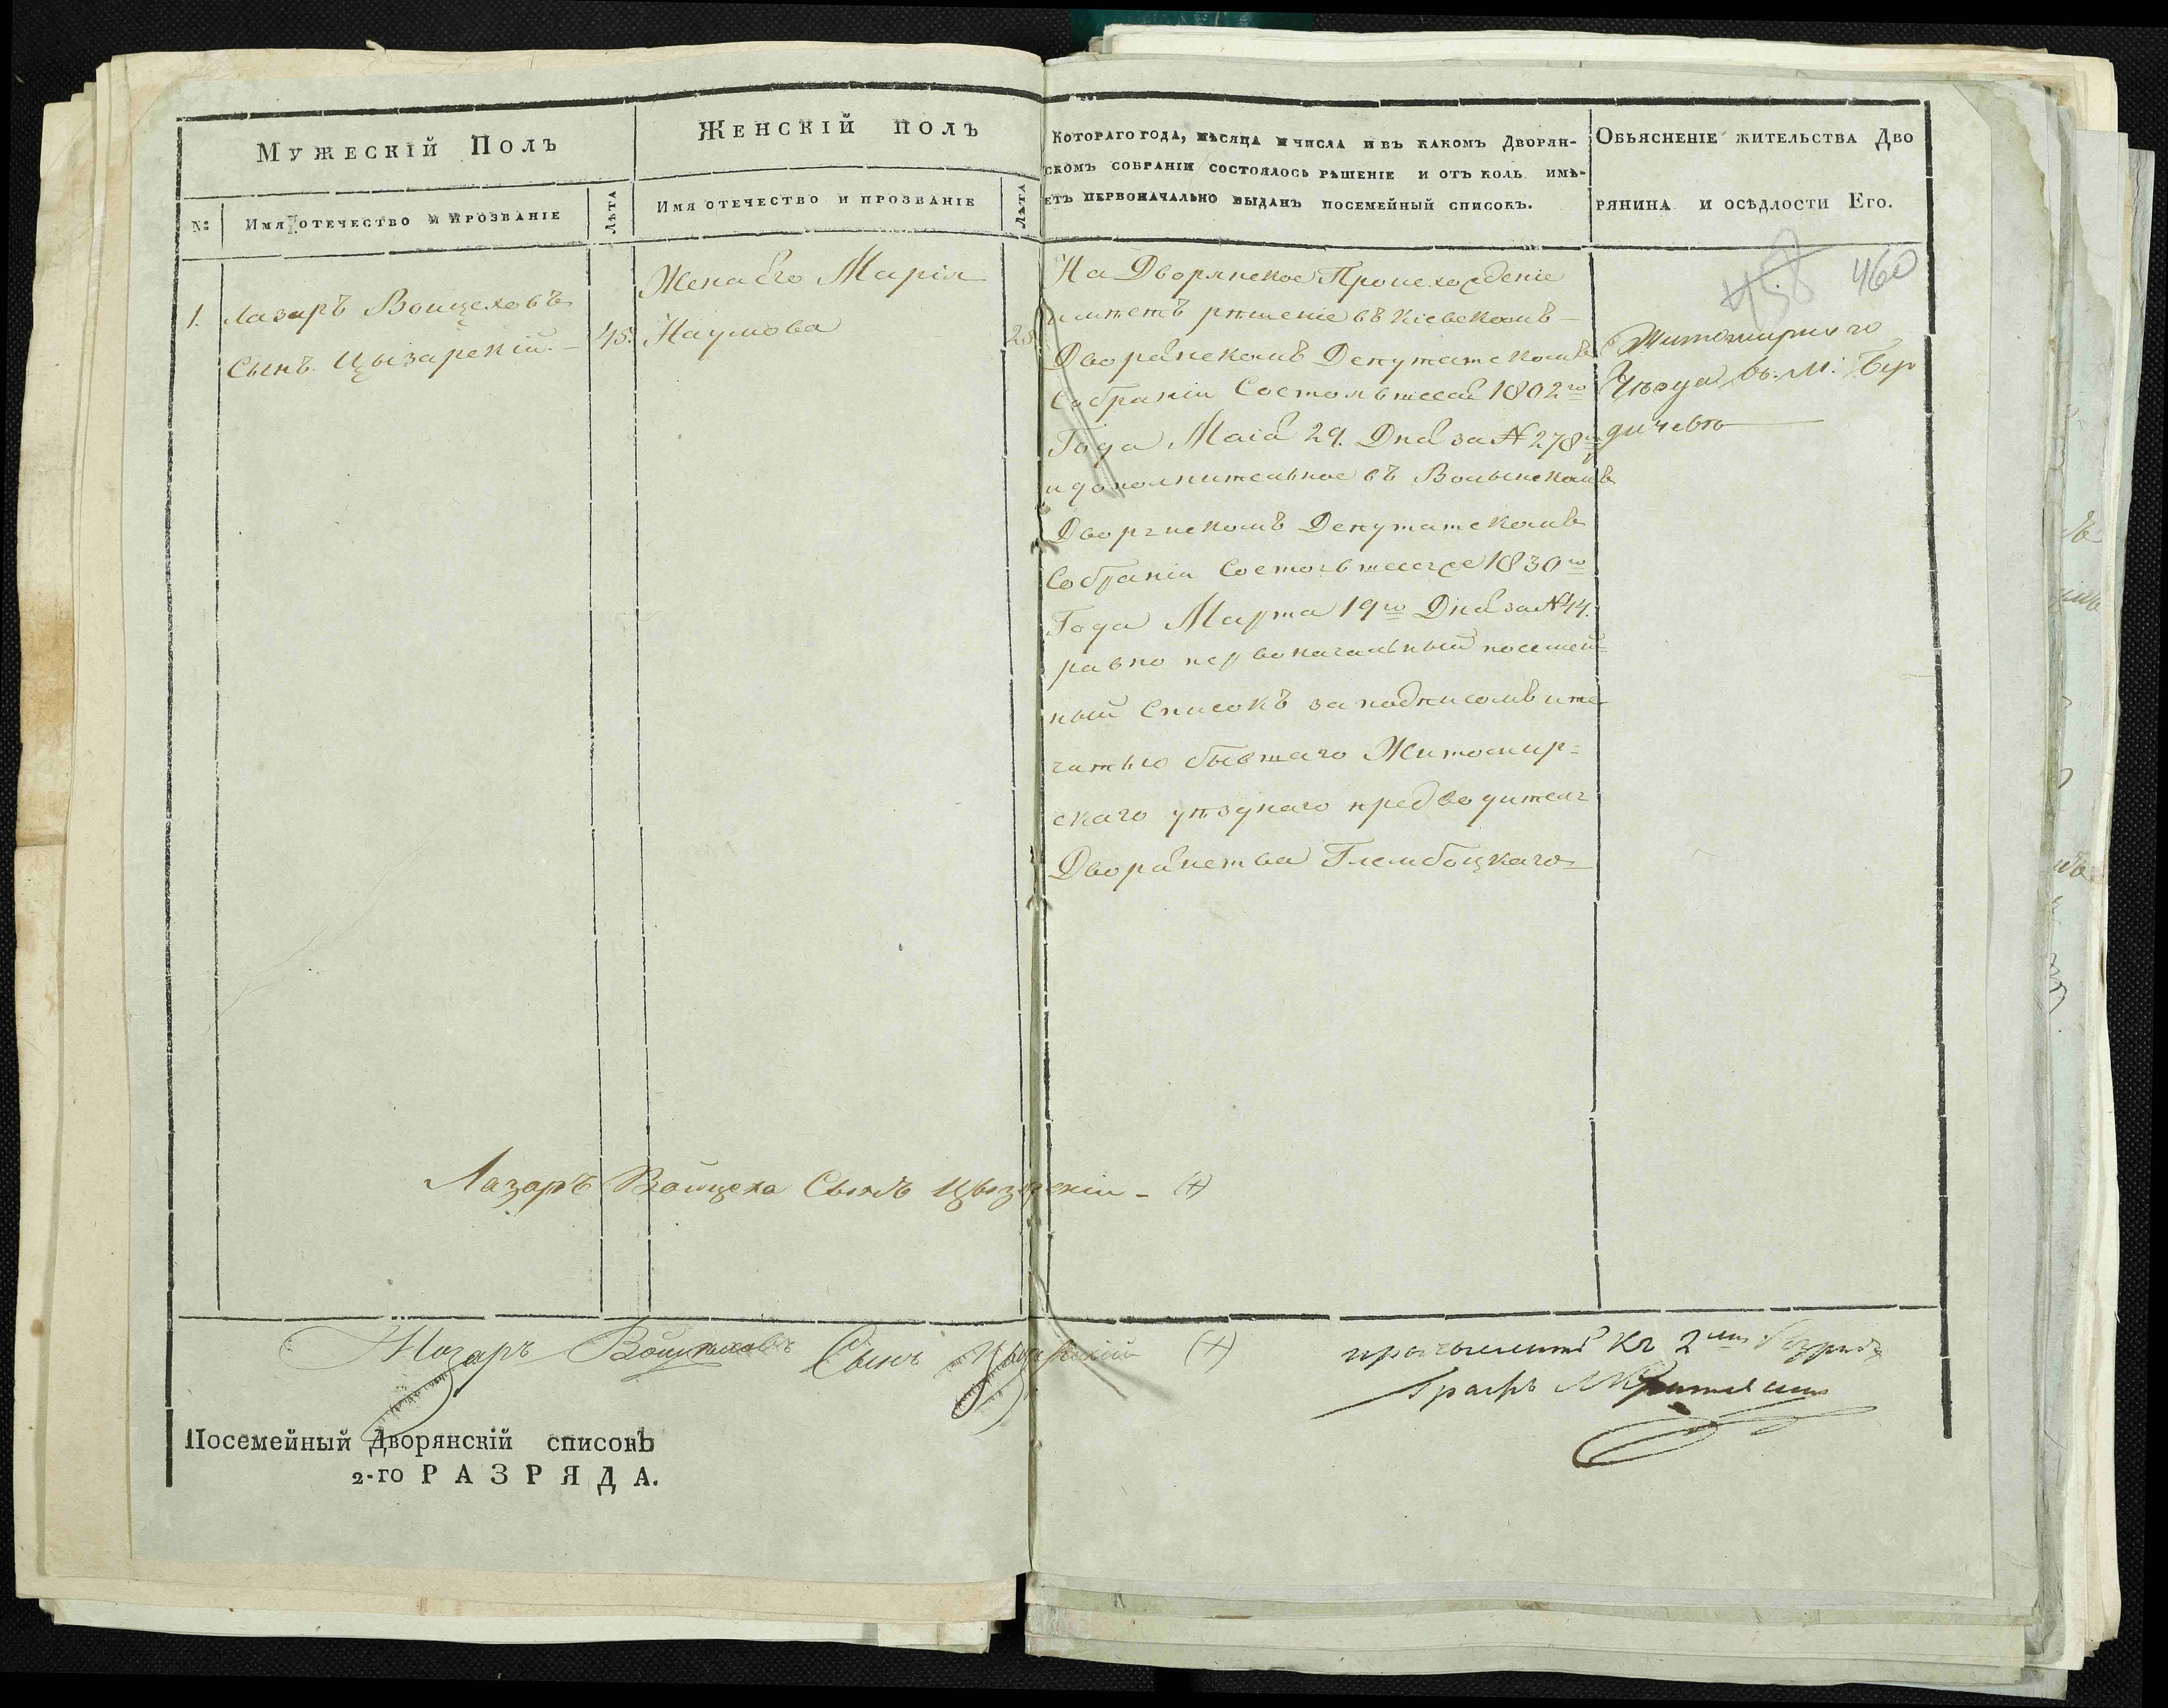 Мужескій Полъ
Женскій полъ
Котораго года, мѣсяца и числа и въ какомъ Дворян-
скомъ собраніи состоялось рѣшеніе и отъ коль имѣ-
етъ первоначально выданъ посемейный списокъ.
Обьясненіе жительства Дво
рянина и осѣдлости Его.
№:
Имя отечество и прозваніе
Лѣта
Имя отечество и прозваніе
Лѣта
458 460
1. Лазаръ Воицеховъ
Сынъ Цызарскій.
45.
Жена Его Марія
Наумова
28
На Дворянское Происхожденіе
имѣетъ рѣшеніе въ Кіевскомъ
Дворянскомъ Депутатскомъ
Собраніи Состоявшееся 1802го
Года Маія 29. Дня за № 278м
и дополнительное въ Волынскомъ
Дворянскомъ Депутатскомъ
Собраніи Состоявшееся 1830го
Года Марта 19го Дня за № 44.
равно первоначальный посемей=
ный Списокъ за подписомъ и пе
чатью бывшаго Житомир=
скаго уѣзднаго предводителя
Дворянства Глембоцкаго
Житомирскаго
Уѣзда въ. М: Бер
дичевѣ
Лазаръ Войцеха Сынъ Цызарскіи - (+)
Лазаръ Войцеховъ Сынъ Цызарскій (+)
причислить къ 2му Разряду
Графъ
Посемейный Дворянскій списокъ
2-го РАЗРЯДА.